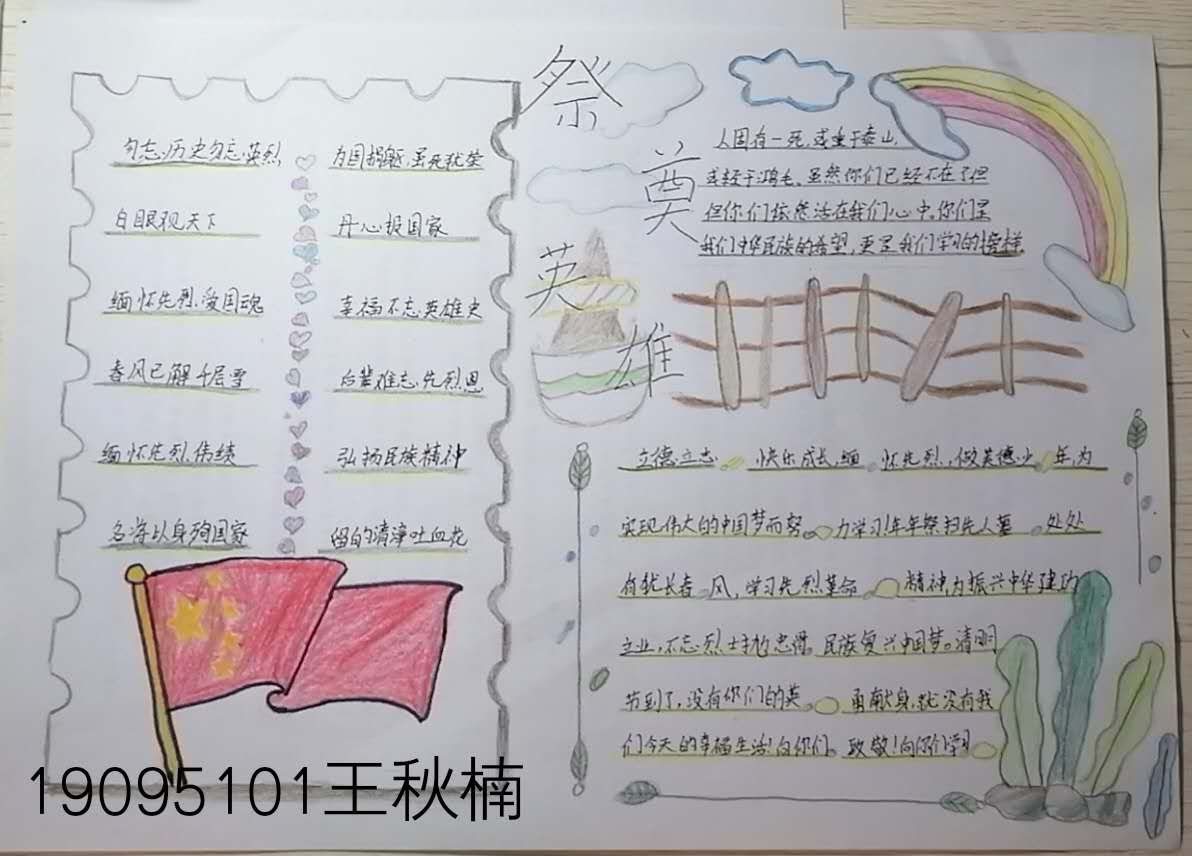 祭奠英雄
勿忘历史勿忘英烈 为国捐躯,虽死犹荣
白眼观天下 丹心报国家
缅怀先烈,爱国魂 幸福不忘英雄史
春风已解千层雪 后辈难忘先烈恩
缅怀先烈伟绩 弘扬民族精神
名海以身殉国家 留的清淨吐血花
人固有一死,或重于泰山,
或轻于鸿毛。虽然你们已经不在了但
但你们依然活在我们心中。你们是
我们中华民族的希望,更是我们学习的榜样
立德立志 快乐成长,缅 怀先烈,做美德少 年,为
实现伟大的中国梦而努 力学习!年年祭扫先人墓 处处
自犹长春 风,学习先烈革命 精神,为振兴中华建功
立业,不忘烈士 忠骨。民族复兴中国梦。清明
节到了,没有你们的英 勇献身,就没有我
们今天的幸福生活!向你们 致敬!向你们学习
19095101王秋楠